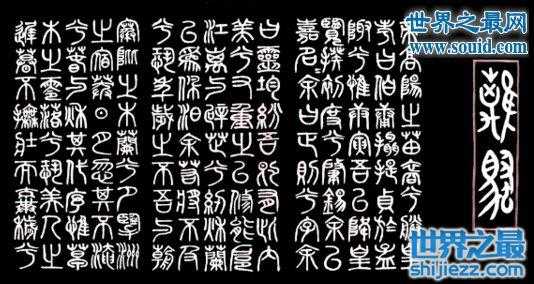 離騷
帝高陽之苗裔兮朕皇
考曰伯庸攝提貞於孟
陬兮惟庚寅吾以降皇
覽揆初度兮肇錫余以
嘉名余曰正則兮字余
曰靈均紛吾既有此內
美兮又重之以修能扈
江離與辟芷兮紉秋蘭
以為佩汨余若將不及
兮恐年歲之不吾與朝
搴阰之木蘭兮夕攬洲
之宿莽日月忽其不淹
兮春與秋其代序惟草
木之零落兮恐美人之
遲暮不撫壯而棄穢兮
世界之最
www.souid.com
世界之最
shijiezz.com